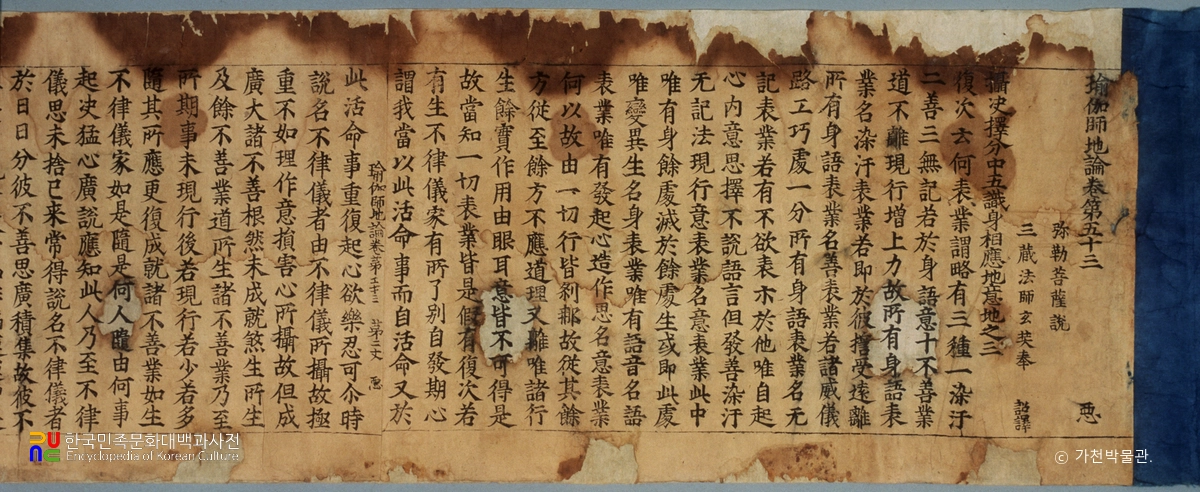 瑜伽師地論卷第五十三 惡
弥勒菩薩說
三藏法師玄奘奉 詔譯
攝决擇分中五識身相應地意地之三
復次云何表業謂略有三種一染汙
二善三無記若於身語意十不善業
道不離現行增上力故所有身語表
業名染汙表業若即於彼誓受遠離
所有身語表業名善表業若諸威儀
路工巧處一分所有身語表業名无
記表業若有不欲表示於他唯自起
心內意思擇不說語言但發善染汙
无記法現行意表業名意表業此中
唯有身餘處滅於餘處生或即此處
唯變異生名身表業唯有語音名語
表業唯有發起心造作思名意表業
何以故由一切行皆剎那故從其餘
方從至餘方不應道理又離唯諸行
生餘實作用由眼耳意皆不可得是
故當知一切表業皆是假有復次若
有生不律儀家有所了別自發期心
謂我當以此活命事而自活命又於
瑜伽師地論卷第五十三 第二丈 惡
此活命事重復起心欲樂忍可尒時
說名不律儀者由不律儀所攝故極
重不如理作意損害心所攝故但成
廣大諸不善根然未成就煞生所生
及餘不善業道所生諸不善業乃至
所期事未現行後若現行若少若多
隨其所應更復成就諸不善業如生
不律儀家如是隨是何人隨由何事
起决猛心廣說應知此人乃至不律
儀思未捨已來常得說名不律儀者
於日日分彼不善思廣積集故彼不
한국민족문화대백과사전
Encyclopedia of Korean Culture
ⓒ 가천박물관.